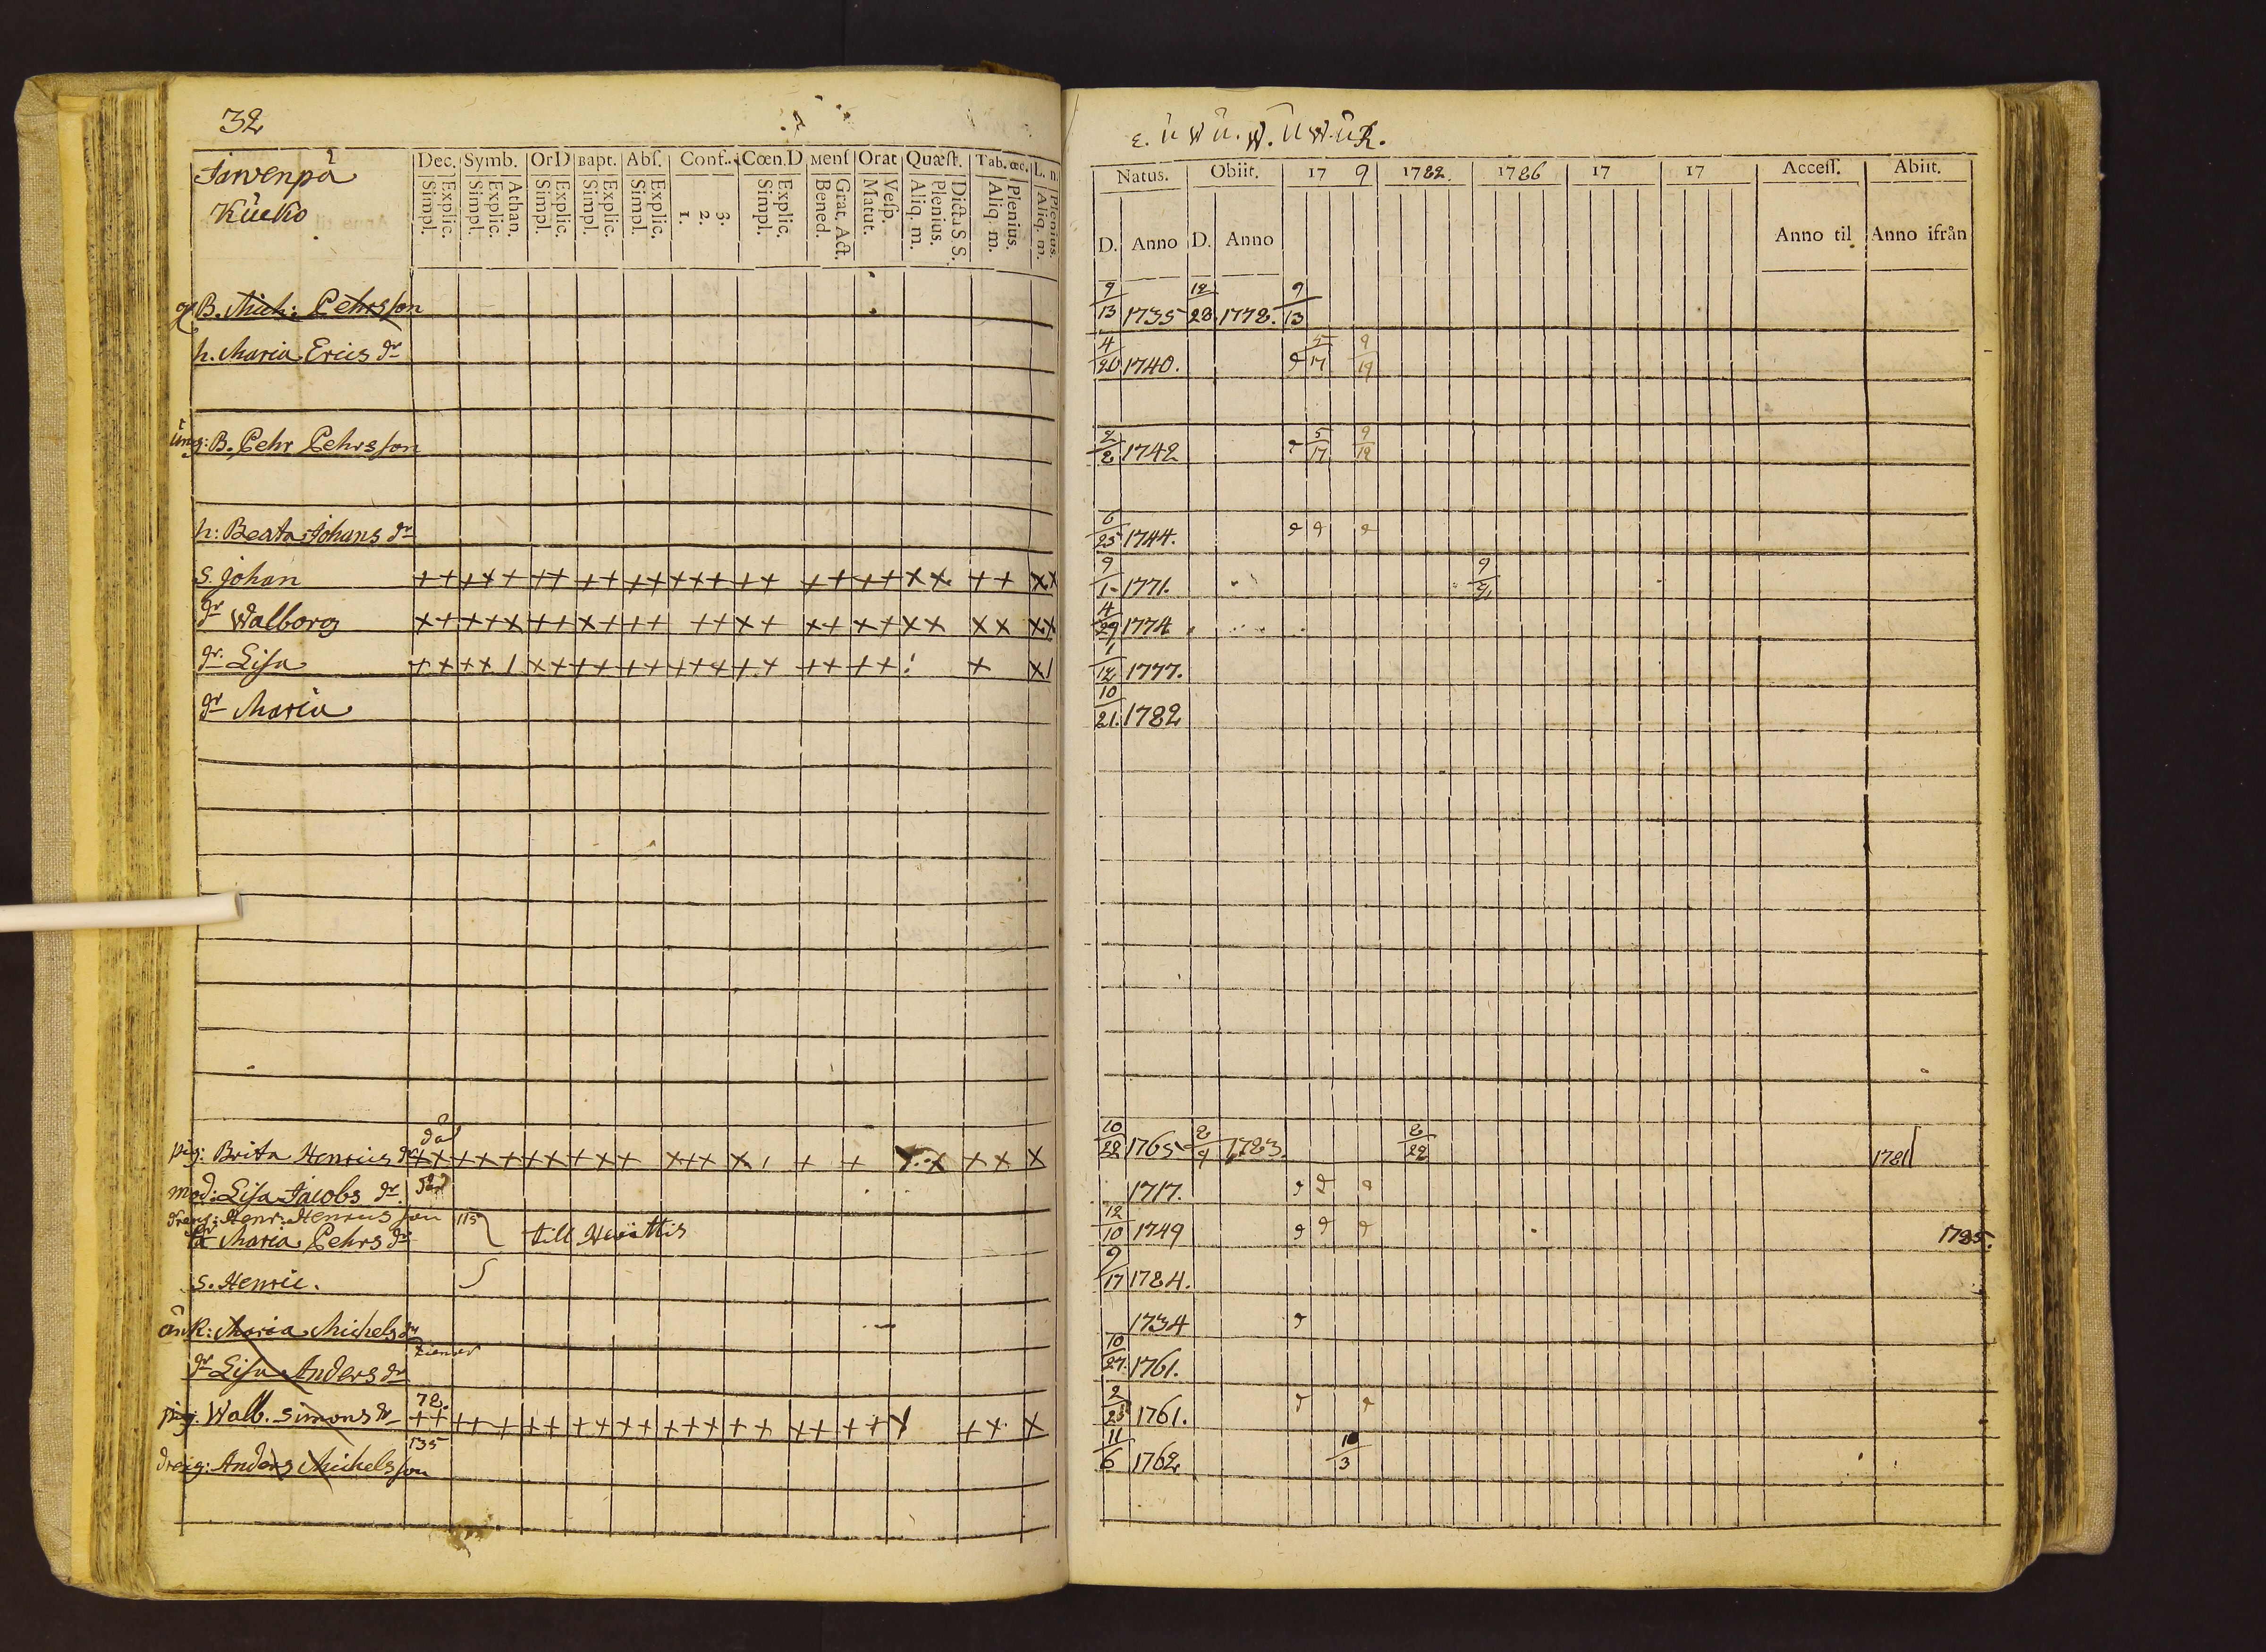 32
Jarvenpä
Kucko
Dec. Symb. OrD Bapt. Abſ. Conf. Cœn.D Menſ Orat Quæſt. Tab. œc. L. n.
Simpl. Explic. Simpl. Explic. Athan. Simpl. Explic. Simpl. Explic. Simpl. Explic. 1. 2. 3. Simpl. Explic. Bened. Grat. Act. Matut. Veſp. Aliq. m. Plenius. Dicta S. S. Aliq. m. Plenius. Aliq. m. Plenius.
B. Mich: Pehrsson
h. Maria Erics dr
ung: B. Pehr Pehrsson
h: Beata Johans dr
S. Johan ++ +++ ++ ++ ++ +++ ++ ++ ++ ×× ++ ××
dr Walborg ×+ ++× ++ ×+ ++ ++ ×+ ×+ ×+ ×× ×× ××
dr Lisa ++ ××/ ×× ++ ++ +++ ++ ++ ++ ! + ×/
dr Maria
död
pig: Brita Henrics dr ++ +++ ++ +++ +++ × + + × × ×× ×
mod: Lisa Jacobs dr död
dreng: Henr. Henricsson 115
Maria Pehrs dr till
s. Henric.
änk: Maria Michels dr
dr Lisa Anders dr
72.
pig. Walb. Simons dr ++ +++ ++ ++ ++ +++ ++ ++ ++ × ++ ×
135
dreng: Anders Michelsson
Natus. Obiit. 17 9 1782. 1786 17 17 Acceſſ. Abiit.
D. Anno D. Anno Anno til Anno ifrån
9/13 1735 12/28 1778. 9/13
4/20 1740. 5/17 9/19
2/2 1742 5/17 9/19
6/25 1744.
9/1 1771.
4/29 1774
1/12 1777.
10/21. 1782
10/22 1765 2/9 1783. 2/22 1781
1717.
12/10 1749 1785.
9/17 1784.
1734
10/27. 1761.
2/25 1761.
11/6 1762 10/3